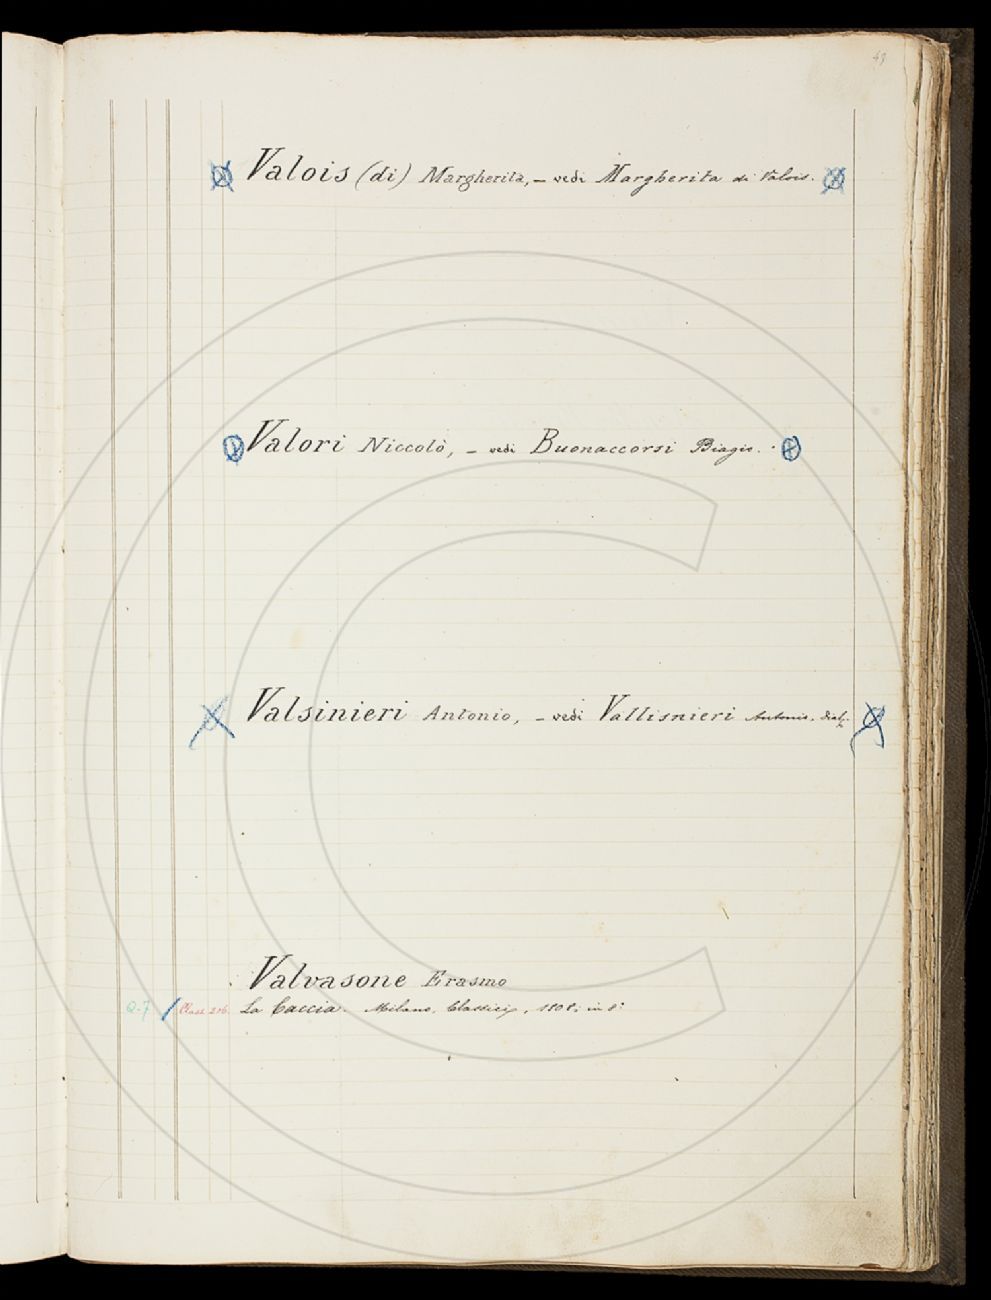 49
Valois (di) Margherita, – vedi Margherita di Valois.
Valori Niccolò, – vedi Buonaccorsi Biagio.
Valsinieri Antonio, – vedi Vallisnieri Antonio.
Valvasone Erasmo
Q-7 Class. 216. La Caccia. Milano, Classici, 1808; in 8°